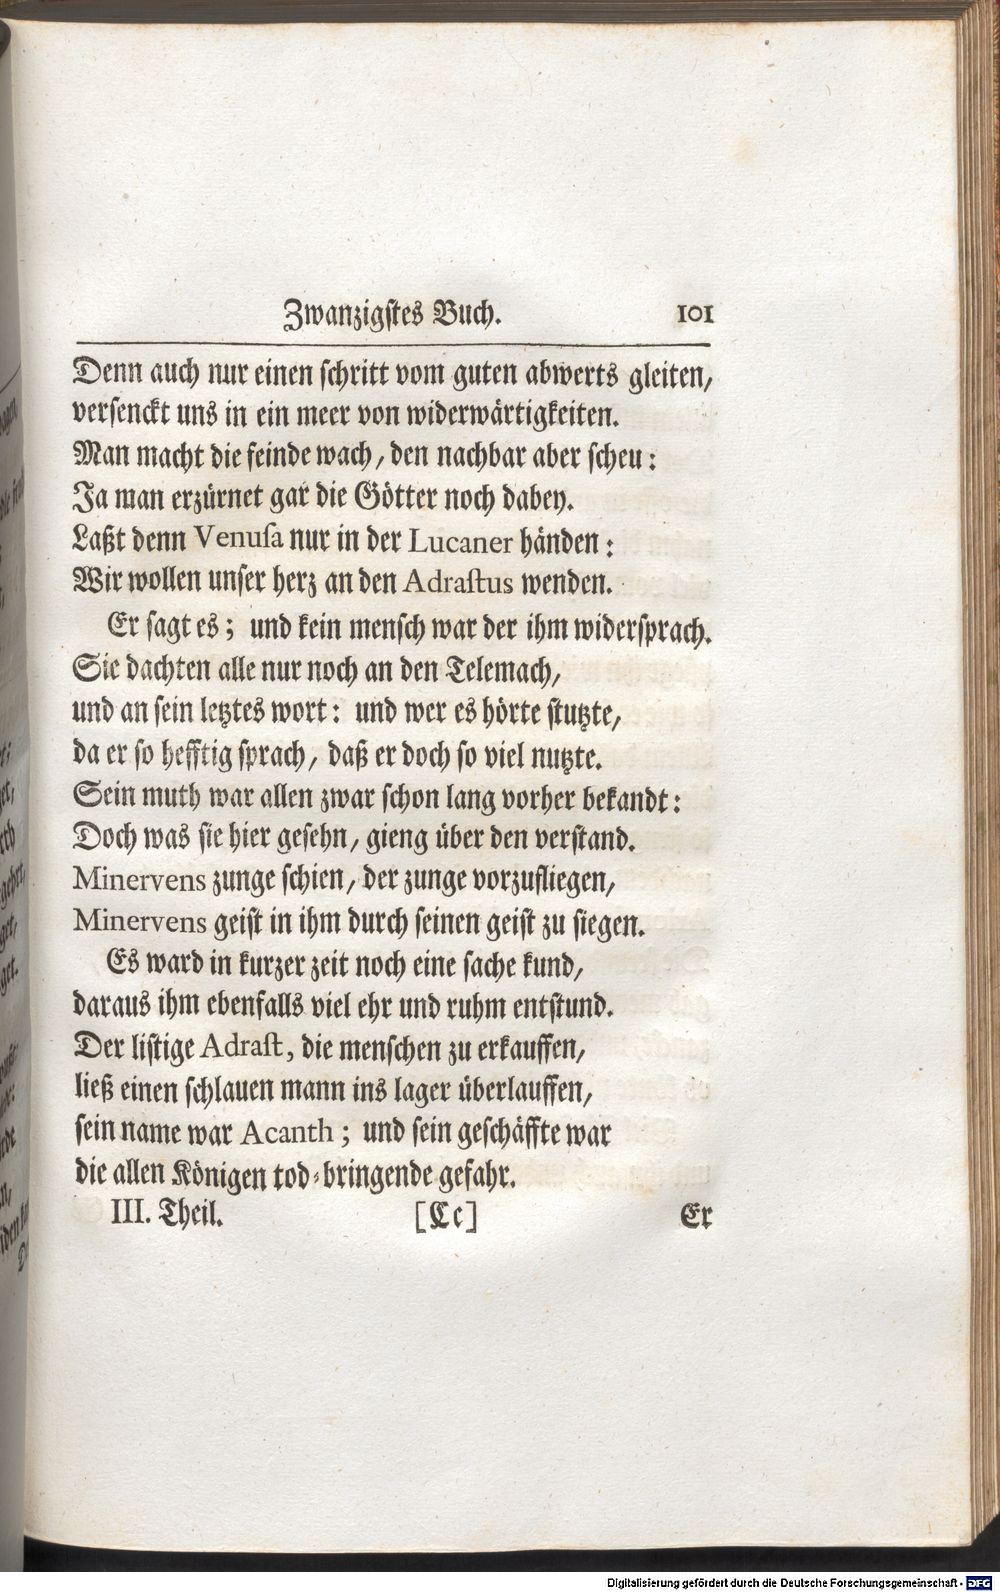 Zwanzigstes Buch. 101
Denn auch nur einen schritt vom guten abwerts gleiten,
versenckt uns in ein meer von widerwärtigkeiten.
Man macht die feinde wach, den nachbar aber scheu:
Ja man erzürnet gar die Götter noch dabey.
Laßt denn Venusa nur in der Lucaner händen:
Wir wollen unser herz an den Adrastus wenden.
Er sagt es; und kein mensch war der ihm widersprach.
Sie dachten alle nur noch an den Telemach,
und an sein letztes wort: und wer es hörte stutzte,
da er so hefftig sprach, daß er doch so viel nutzte.
Sein muth war allen zwar schon lang vorher bekandt:
Doch was sie hier gesehn, gieng über den verstand.
Minervens zunge schien, der zunge vorzufliegen,
Minervens geist in ihm durch seinen geist zu siegen.
Es ward in kurzer zeit noch eine sache kund,
daraus ihm ebenfalls viel ehr und ruhm entstund.
Der listige Adrast, die menschen zu erkauffen,
ließ einen schlauen mann ins lager überlauffen,
sein name war Acanth; und sein geschäffte war
die allen Königen tod-bringende gefahr.
III. Theil. [Cc] Er
Digitalisierung gefördert durch die Deutsche Forschungsgemeinschaft - DFG